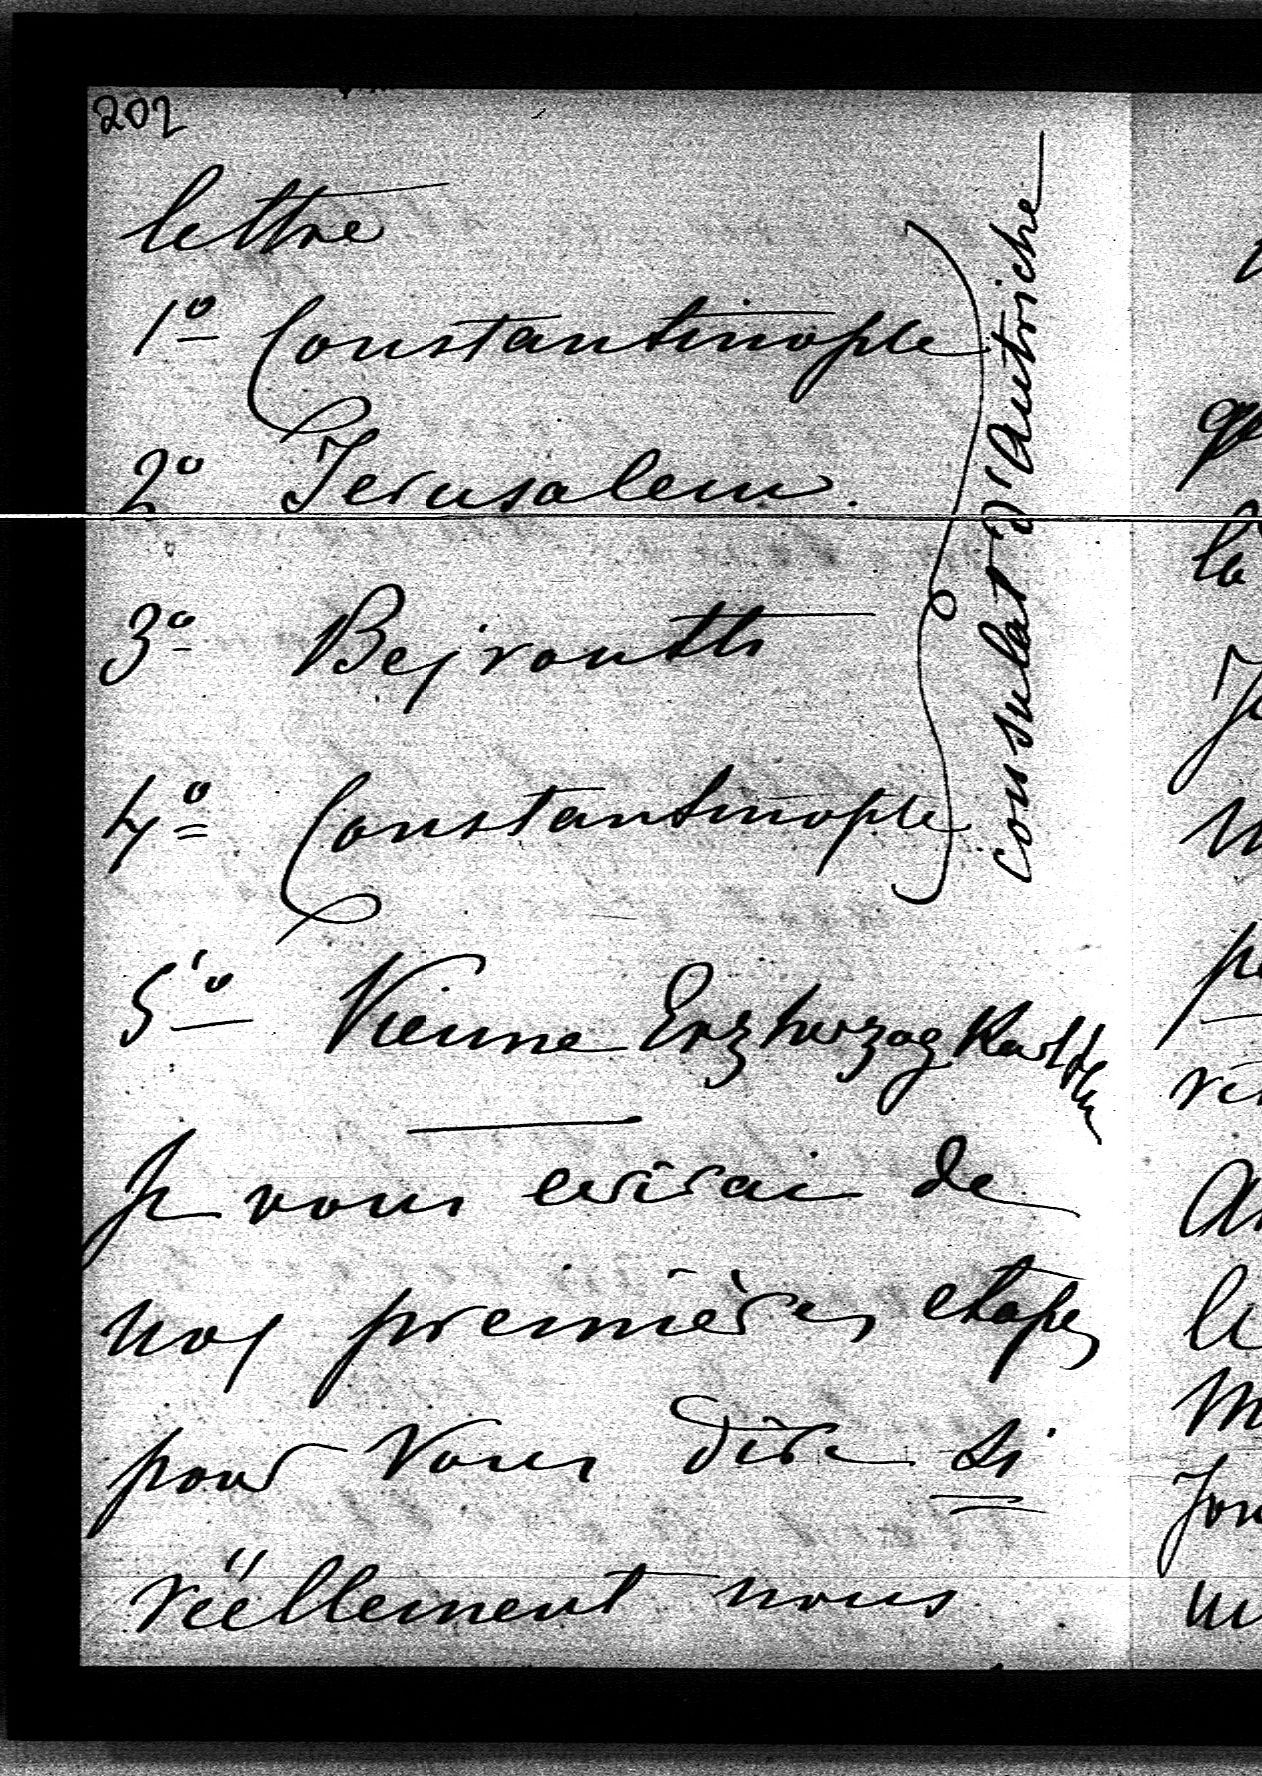 202
lettre
1º Constantinople
2º Jerusalem.
3º Bejrouth
4º Constantinople
Consulat d'Autriche
5º Vienne Erzherzog Karl
Je vous ecrirai de
nos premières etapes
pour vous dire si
réellement nous